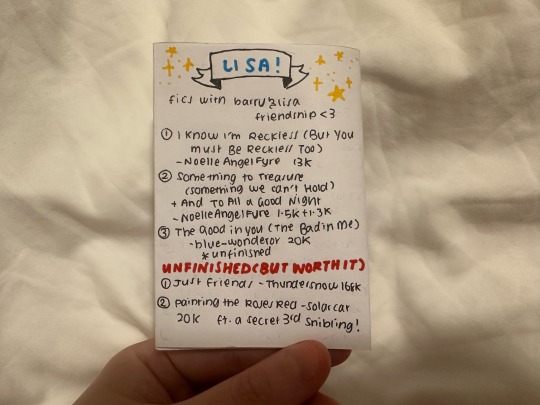 LISA!
fics with barry & lisa
friendship <3
① I Know I'm Reckless (But You
must Be Reckless Too)
- Noelle Angel Fyre 13K
② Something to Treasure
(something we can't Hold)
+ And To All a Good Night
- Noelle Angel Fyre 1.5K + 1.3K
③ The Good in you (The Bad in Me)
- blue-wonderor 20K
* unfinished
UNFINISHED (BUT WORTH IT)
① Just Friends - Thundersnow 168K
② Painting the Roses Red - solarcat
20K ft. a secret 3rd Snibling!